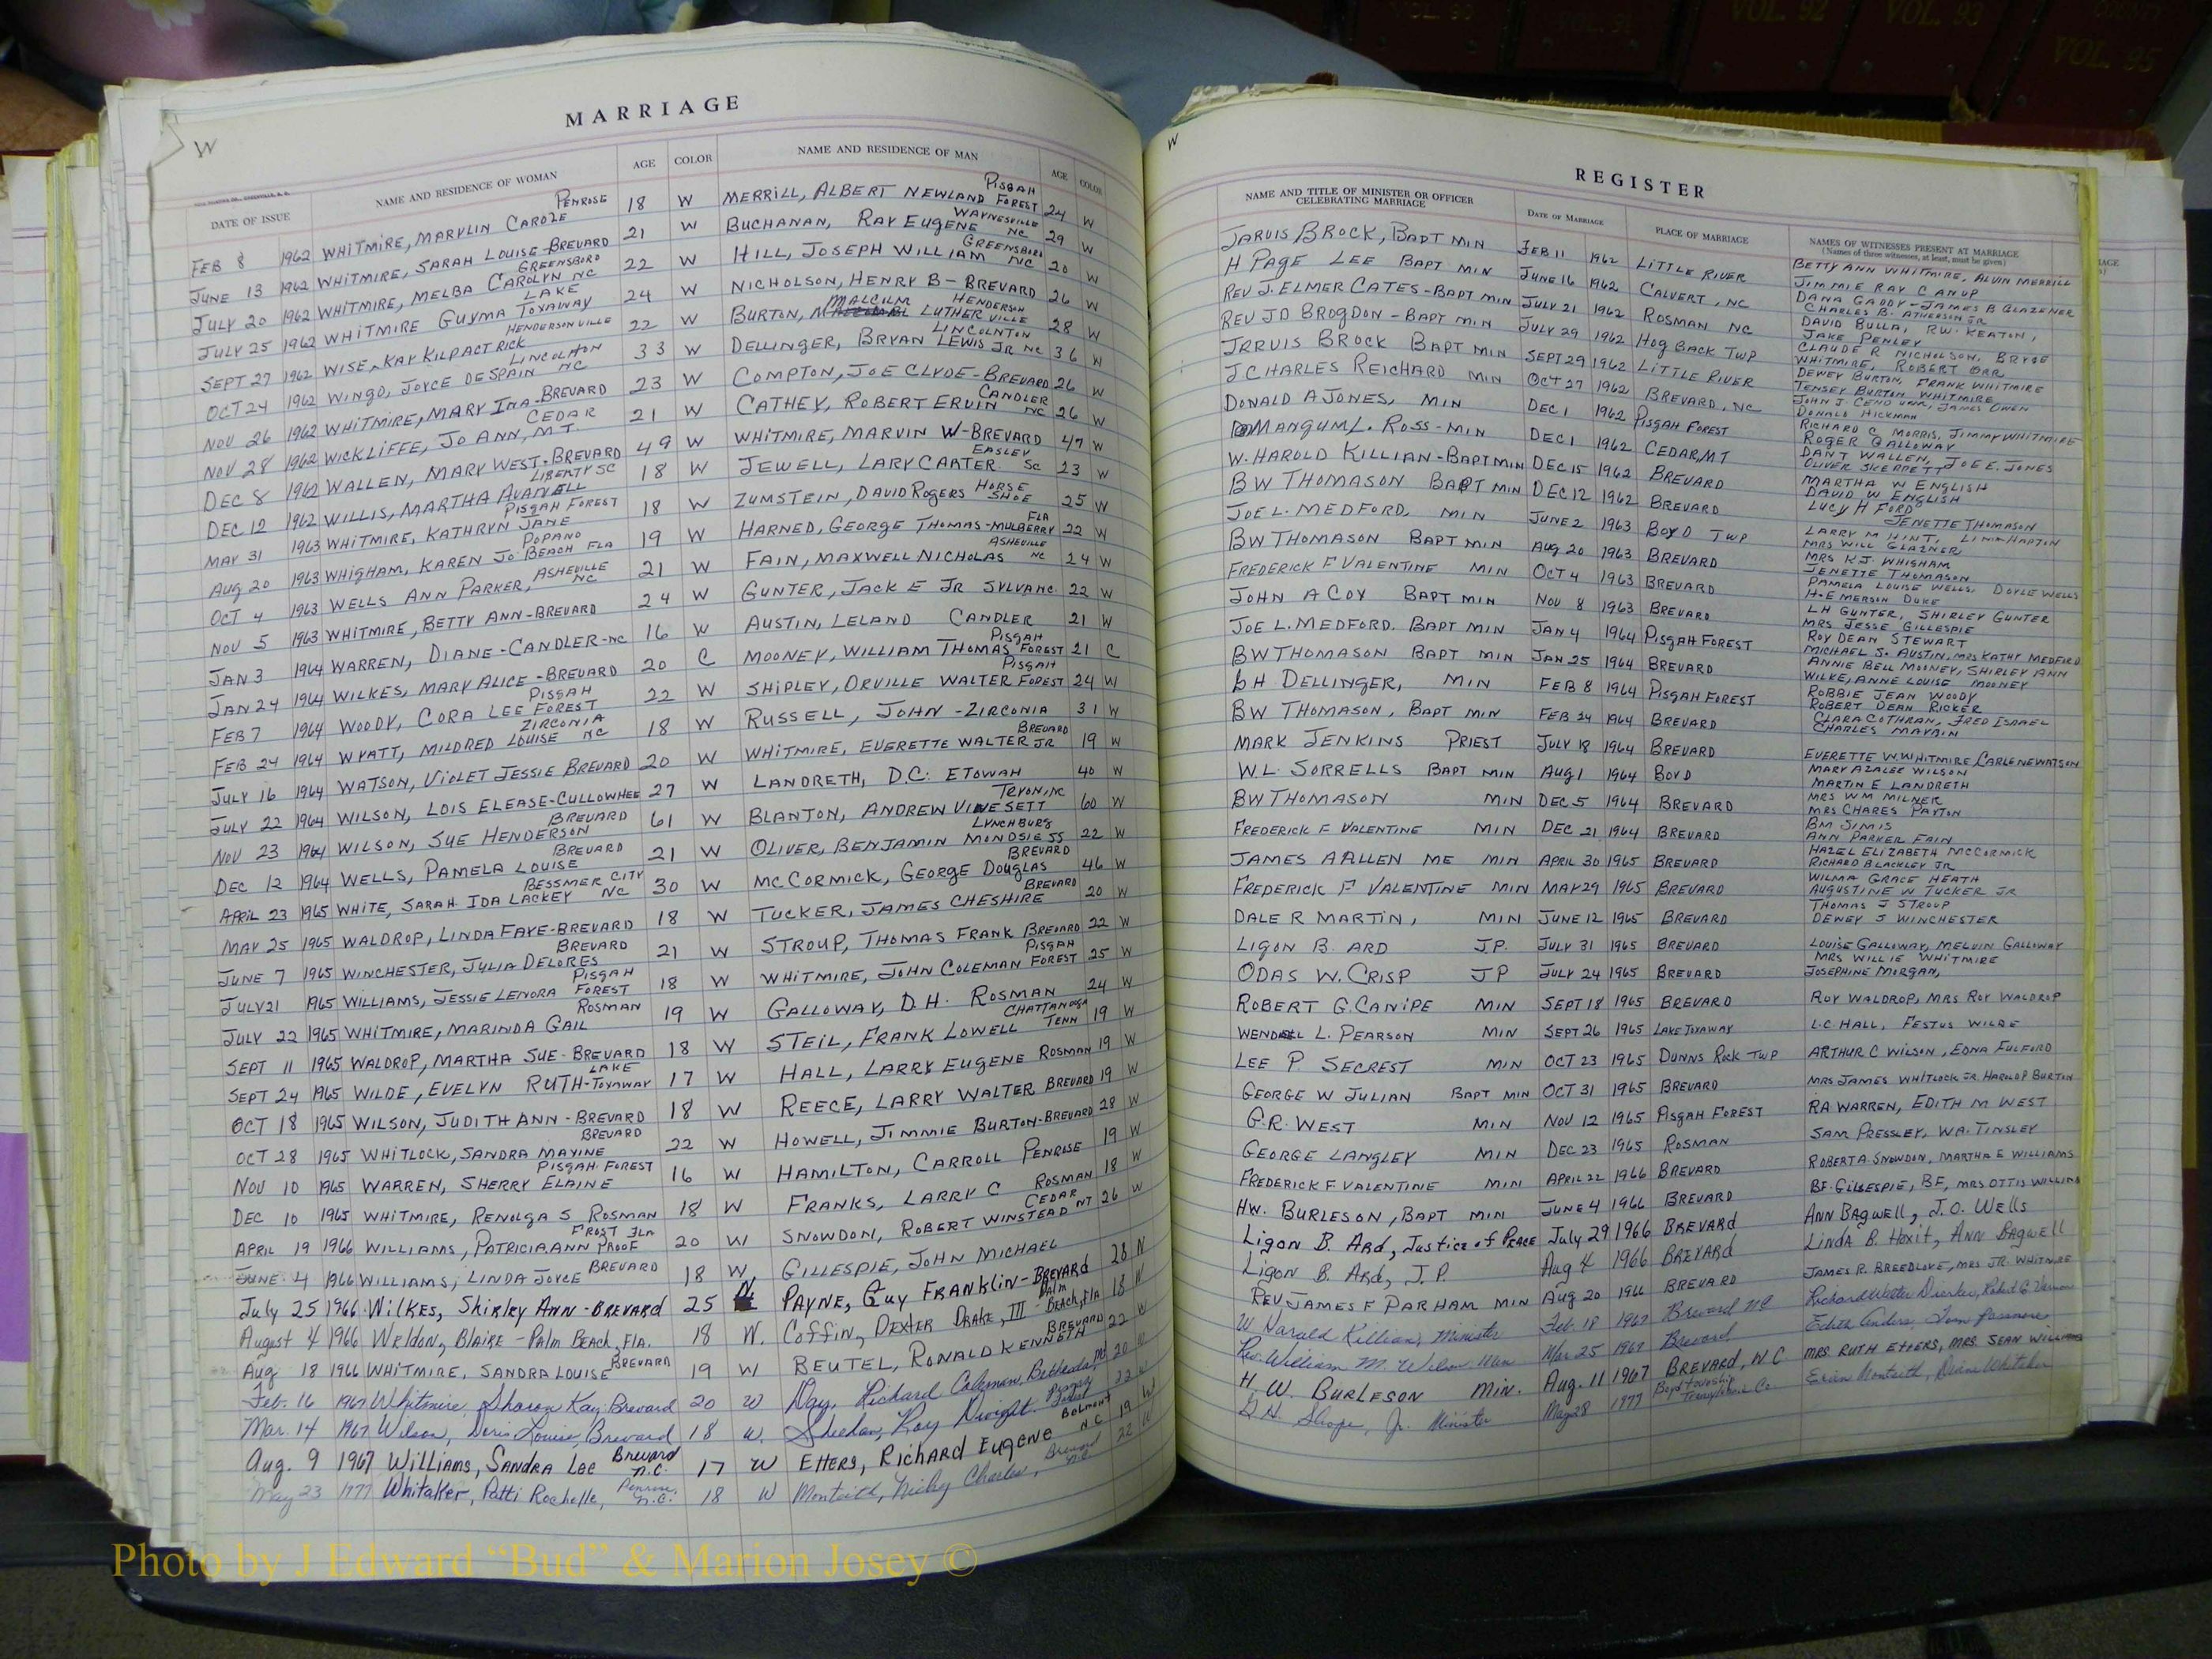 VOL. 92
VOL. 93
VOL. 95
MARRIAGE
W
DATE OF ISSUE NAME AND RESIDENCE OF WOMAN AGE COLOR NAME AND RESIDENCE OF MAN AGE COLOR
FEB 8 1962 WHITMIRE, MARYLIN CAROLE PENROSE 18 W MERRILL, ALBERT NEWLAND PISGAH FOREST 24 W
JUNE 13 1962 WHITMIRE, SARAH LOUISE-BREVARD 21 W BUCHANAN, RAY EUGENE WAYNESVILLE NC 29 W
JULY 20 1962 WHITMIRE, MELBA CAROLYN GREENSBORO NC 22 W HILL, JOSEPH WILLIAM GREENSBORO NC 20 W
JULY 25 1962 WHITMIRE GUYMA LAKE TOXAWAY 24 W NICHOLSON, HENRY B-BREVARD 26 W
SEPT 27 1962 WISE, KAY KILPACTRICK HENDERSONVILLE 22 W BURTON, MALCILM LUTHER HENDERSON VILLE 28 W
OCT 24 1962 WINGO, JOYCE DESPAIN LINCOLNTON NC 33 W DELLINGER, BRYAN LEWIS JR LINCOLNTON NC 36 W
NOV 26 1962 WHITMIRE, MARY INA-BREVARD 23 W COMPTON, JOE CLYDE-BREVARD 26 W
NOV 28 1962 WICKLIFFE, JO ANN, CEDAR MT. 21 W CATHEY, ROBERT ERVIN CANDLER NC 26 W
DEC 8 1962 WALLEN, MARY WEST-BREVARD 49 W WHITMIRE, MARVIN W-BREVARD 47 W
DEC 12 1962 WILLIS, MARTHA LIBERTY SC 18 W JEWELL, LARY CARTER EASLEY SC 23 W
MAY 31 1963 WHITMIRE, KATHRYN JANE PISGAH FOREST 18 W ZUMSTEIN, DAVID ROGERS HORSE SHOE 25 W
AUG 20 1963 WHIGHAM, KAREN JO POPANO BEACH FLA 19 W HARNED, GEORGE THOMAS-MULBERRY FLA 22 W
OCT 4 1963 WELLS ANN PARKER, ASHEVILLE NC 21 W FAIN, MAXWELL NICHOLAS ASHEVILLE NC 24 W
NOV 5 1963 WHITMIRE, BETTY ANN-BREVARD 24 W GUNTER, JACK E JR SYLVANC. 22 W
JAN 3 1964 WARREN, DIANE-CANDLER-NC 16 W AUSTIN, LELAND CANDLER 21 W
JAN 24 1964 WILKES, MARY ALICE-BREVARD 20 C MOONEY, WILLIAM THOMAS PISGAH FOREST 21 C
FEB 7 1964 WOODY, CORA LEE PISGAH FOREST 22 W SHIPLEY, ORVILLE WALTER PISGAH FOREST 24 W
FEB 24 1964 WYATT, MILDRED LOUISE ZIRCONIA NC 18 W RUSSELL, JOHN-ZIRCONIA 31 W
JULY 16 1964 WATSON, VIOLET JESSIE BREVARD 20 W WHITMIRE, EVERETTE WALTER JR BREVARD 19 W
JULY 22 1964 WILSON, LOIS ELEASE-CULLOWHEE 27 W LANDRETH, D.C. ETOWAH 40 W
NOV 23 1964 WILSON, SUE HENDERSON BREVARD 61 W BLANTON, ANDREW VINESETT TRYON, NC 60 W
DEC 12 1964 WELLS, PAMELA LOUISE BREVARD 21 W OLIVER, BENJAMIN LYNCHBURG 22 W
APRIL 23 1965 WHITE, SARAH IDA LACKEY BESSMER CITY NC 30 W MCCORMICK, GEORGE DOUGLAS BREVARD 46 W
MAY 25 1965 WALDROP, LINDA FAYE-BREVARD 18 W TUCKER, JAMES CHESHIRE BREVARD 20 W
JUNE 7 1965 WINCHESTER, JULIA DELORES BREVARD 21 W STROUP, THOMAS FRANK BREVARD 22 W
JULY 21 1965 WILLIAMS, JESSIE LENORA PISGAH FOREST 18 W WHITMIRE, JOHN COLEMAN PISGAH FOREST 25 W
JULY 22 1965 WHITMIRE, MARINDA GAIL ROSMAN 19 W GALLOWAY, D.H. ROSMAN 24 W
SEPT 11 1965 WALDROP, MARTHA SUE-BREVARD 18 W STEIL, FRANK LOWELL CHATTANOOGA TENN 19 W
SEPT 24 1965 WILDE, EVELYN RUTH-LAKE TOXAWAY 17 W HALL, LARRY EUGENE ROSMAN 19 W
OCT 18 1965 WILSON, JUDITH ANN-BREVARD 18 W REECE, LARRY WALTER BREVARD 19 W
OCT 28 1965 WHITLOCK, SANDRA MAXINE BREVARD 22 W HOWELL, JIMMIE BURTON-BREVARD 28 W
NOV 10 1965 WARREN, SHERRY ELAINE PISGAH FOREST 16 W HAMILTON, CARROLL PENROSE 19 W
DEC 10 1965 WHITMIRE, RENOLGA S ROSMAN 18 W FRANKS, LARRY C ROSMAN 18 W
APRIL 19 1966 WILLIAMS, PATRICIA ANN FROST PROOF FLA 20 W SNOWDON, ROBERT WINSTEAD CEDAR MT 26 W
JUNE 4 1966 WILLIAMS, LINDA JOYCE BREVARD 18 W GILLESPIE, JOHN MICHAEL
July 25 1966 Wilkes, Shirley Ann-Brevard 25 N PAYNE, Guy Franklin-Brevard 28 N
August 4 1966 Weldon, Blaire-Palm Beach, Fla. 18 W. Coffin, Dexter Drake, III-Palm Beach, Fla 18 W
Aug 18 1966 WHITMIRE, SANDRA LOUISE BREVARD 19 W BEUTEL, RONALD KENNETH BREVARD 22 W
Feb. 16 1967 Whitmire, Sharon Kay, Brevard 20 W Day, Richard Coleman, Bethesda, Md 20 W
Mar. 14 1967 Wilson, Doris Louise, Brevard 18 W. Sheehan, Roy Dwight Pisgah Forest 22 W
Aug. 9 1967 Williams, Sandra Lee Brevard N.C. 17 W Etters, Richard Eugene Belmont N C 19 W
May 23 1977 Whitaker, Patti Rochelle, Penrose, N.C. 18 W Monteith, Nicky Charles, Brevard N.C. 22 W
W
REGISTER
NAME AND TITLE OF MINISTER OR OFFICER CELEBRATING MARRIAGE DATE OF MARRIAGE PLACE OF MARRIAGE NAMES OF WITNESSES PRESENT AT MARRIAGE
(Names of three witnesses, at least, must be given)
JARVIS BROCK, BAPT MIN FEB 11 1962 LITTLE RIVER BETTY ANN WHITMIRE, ALVIN MERRILL
H PAGE LEE BAPT MIN JUNE 16 1962 CALVERT, NC JIMMIE RAY CANUP
DANA GADDY-JAMES B GLAZENER
REV J. ELMER CATES-BAPT MIN JULY 21 1962 ROSMAN NC CHARLES B. ATHERSON JR
DAVID BULLA, R.W. KEATON,
REV JD BROGDON-BAPT MIN JULY 29 1962 HOG BACK TWP JAKE PENLEY
CLAUDE R NICHOLSON, BRYCE
JARVIS BROCK BAPT MIN SEPT 29 1962 LITTLE RIVER WHITMIRE, ROBERT ORR
DEWEY BURTON, FRANK WHITMIRE
J. CHARLES REICHARD MIN OCT 27 1962 BREVARD, NC TENSEY BURTON WHITMIRE
DONALD A JONES, MIN DEC 1 1962 PISGAH FOREST DONALD HICKMAN
RICHARD C MORRIS, JIMMY WHITMIRE
MANGUM L. ROSS-MIN DEC 1 1962 CEDAR, MT ROGER GALLOWAY
W. HAROLD KILLIAN-BAPT MIN DEC 15 1962 BREVARD DAN T WALLEN, JOE E. JONES
B W THOMASON BAPT MIN DEC 12 1962 BREVARD MARTHA W ENGLISH
DAVID W ENGLISH
JOE L. MEDFORD, MIN JUNE 2 1963 BOYD TWP LUCY H FORD
JENETTE THOMASON
BW THOMASON BAPT MIN AUG 20 1963 BREVARD MRS WILL GLAZNER
MRS K.J. WHIGHAM
FREDERICK F VALENTINE MIN OCT 4 1963 BREVARD JENETTE THOMASON
PAMELA LOUISE WELLS, DOYLE WELLS
JOHN A COX BAPT MIN NOV 8 1963 BREVARD H. EMERSON DUKE
LH GUNTER, SHIRLEY GUNTER
JOE L. MEDFORD. BAPT MIN JAN 4 1964 PISGAH FOREST MRS JESSE GILLESPIE
ROY DEAN STEWART
BW THOMASON BAPT MIN JAN 25 1964 BREVARD MICHAEL S. AUSTIN, MRS KATHY MEDFORD
ANNIE BELL MOONEY, SHIRLEY ANN
H DELLINGER, MIN FEB 8 1964 PISGAH FOREST WILKE, ANNE LOUISE MOONEY
ROBBIE JEAN WOODY
BW THOMASON, BAPT MIN FEB 24 1964 BREVARD ROBERT DEAN RICKER
CLARA COTHRAN, FRED ISRAEL
CHARLES MAYBIN
MARK JENKINS PRIEST JULY 18 1964 BREVARD EVERETTE W. WHITMIRE, CARLENE WATSON
W.L. SORRELLS BAPT MIN AUG 1 1964 BOYD MARY AZALEE WILSON
MARTIN E LANDRETH
BW THOMASON MIN DEC 5 1964 BREVARD MRS WM MILNER
MRS CHARES PAYTON
FREDERICK F VALENTINE MIN DEC 21 1964 BREVARD BM SIMIS
ANN PARKER FAIN
JAMES A ALLEN ME MIN APRIL 30 1965 BREVARD HAZEL ELIZABETH MCCORMICK
RICHARD BLACKLEY JR
FREDERICK F VALENTINE MIN MAY 29 1965 BREVARD WILMA GRACE HEATH
AUGUSTINE W TUCKER JR
DALE R MARTIN, MIN JUNE 12 1965 BREVARD THOMAS J STROUP
DEWEY S WINCHESTER
LIGON B. ARD J.P. JULY 31 1965 BREVARD LOUISE GALLOWAY, MELVIN GALLOWAY
MRS WILLIE WHITMIRE
ODAS W. CRISP JP JULY 24 1965 BREVARD JOSEPHINE MORGAN,
ROBERT G. CANIPE MIN SEPT 18 1965 BREVARD ROY WALDROP, MRS ROY WALDROP
WENDELL L. PEARSON MIN SEPT 26 1965 LAKE TOXAWAY L.C. HALL, FESTUS WILDE
LEE P SECREST MIN OCT 23 1965 DUNNS ROCK TWP ARTHUR C WILSON, EDNA FULFORD
GEORGE W JULIAN BAPT MIN OCT 31 1965 BREVARD MRS JAMES WHITLOCK JR. HAROLD P BURTON
G.R. WEST MIN NOV 12 1965 PISGAH FOREST RA WARREN, EDITH M WEST
GEORGE LANGLEY MIN DEC 23 1965 ROSMAN SAM PRESSLEY, WA. TINSLEY
FREDERICK F VALENTINE MIN APRIL 22 1966 BREVARD ROBERT A. SNOWDON, MARTHA E WILLIAMS
HW. BURLESON, BAPT MIN JUNE 4 1966 BREVARD BF. GILLESPIE, BF, MRS OTTIS WILLIAMS
Ligon B. Ard, Justice of Peace July 29 1966 BREVARD ANN BAGWELL, J.O. Wells
Ligon B. Ard, J.P. Aug 4 1966 BREVARD LINDA B. Hoxit, ANN Bagwell
REV JAMES F PARHAM MIN Aug 20 1966 BREVARD JAMES R. BREEDLOVE, MRS JR. WHITMIRE
W Harold Killian, Minister Feb. 18 1967 Brevard NC
Rev. William M. Wilson Min Mar 25 1967 Brevard
H. W. BURLESON MIN. Aug. 11 1967 BREVARD, N C MRS. RUTH ETTERS, MRS. SEAN WILLIAMS
Jr. Minister May 28 1977 Boyd township Transylvania Co. Diane Whitaker
Photo by J Edward “Bud” & Marion Josey ©